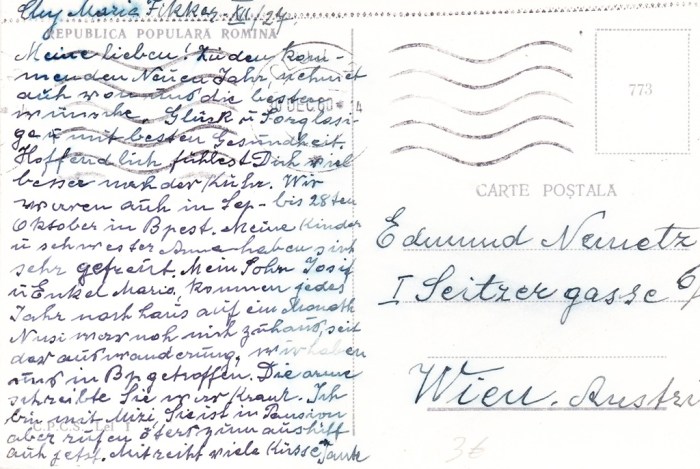 Cluj Maria Fikker XII/24.
REPUBLICA POPULARA ROMINĂ
Meine lieben! Zu den kom-
menden Neuen Jahr, nehmet
auch von uns die besten
wünsche, Glück u Sorglosi-
ge u mit besten Gesundheit.
Hoffendlich fühlest Dich viel
besser nach der Kuhr. Wir
waren auch in Sep- bis 28ten
Oktober in Bpest. Meine Kinder
u schwester Anna haben sich
sehr gefreut. Mein Sohn Josif
u Enkel Mario, kommen jedes
Jahr nach haus auf ein Monath
Nusi war noh nich zuhaus, seit
der auswanderung, wir haben
uns in Bp getroffen. Die arme
schreibte Sie war Krank. Ich
bin mit Mizi, Sie ist in Pension
aber rufen öters zum aushilf
auh jetzt. Mit recht viele Küsse Tante
C.P.C.S. Lei
DEC. 60 - 14
773
CARTE POȘTALĂ
Edmund Nemetz
I Seitzergasse 6/
Wien. Austri
36